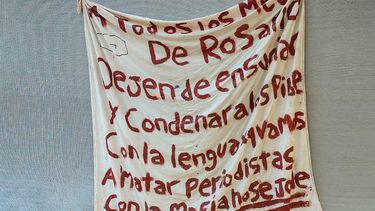 A Todos los Me
De Rosario
Dejen de ensuciar
y Condenar a los Pibe
Con la lengua o vamos
A matar periodistas
Con la Mafia no se jode